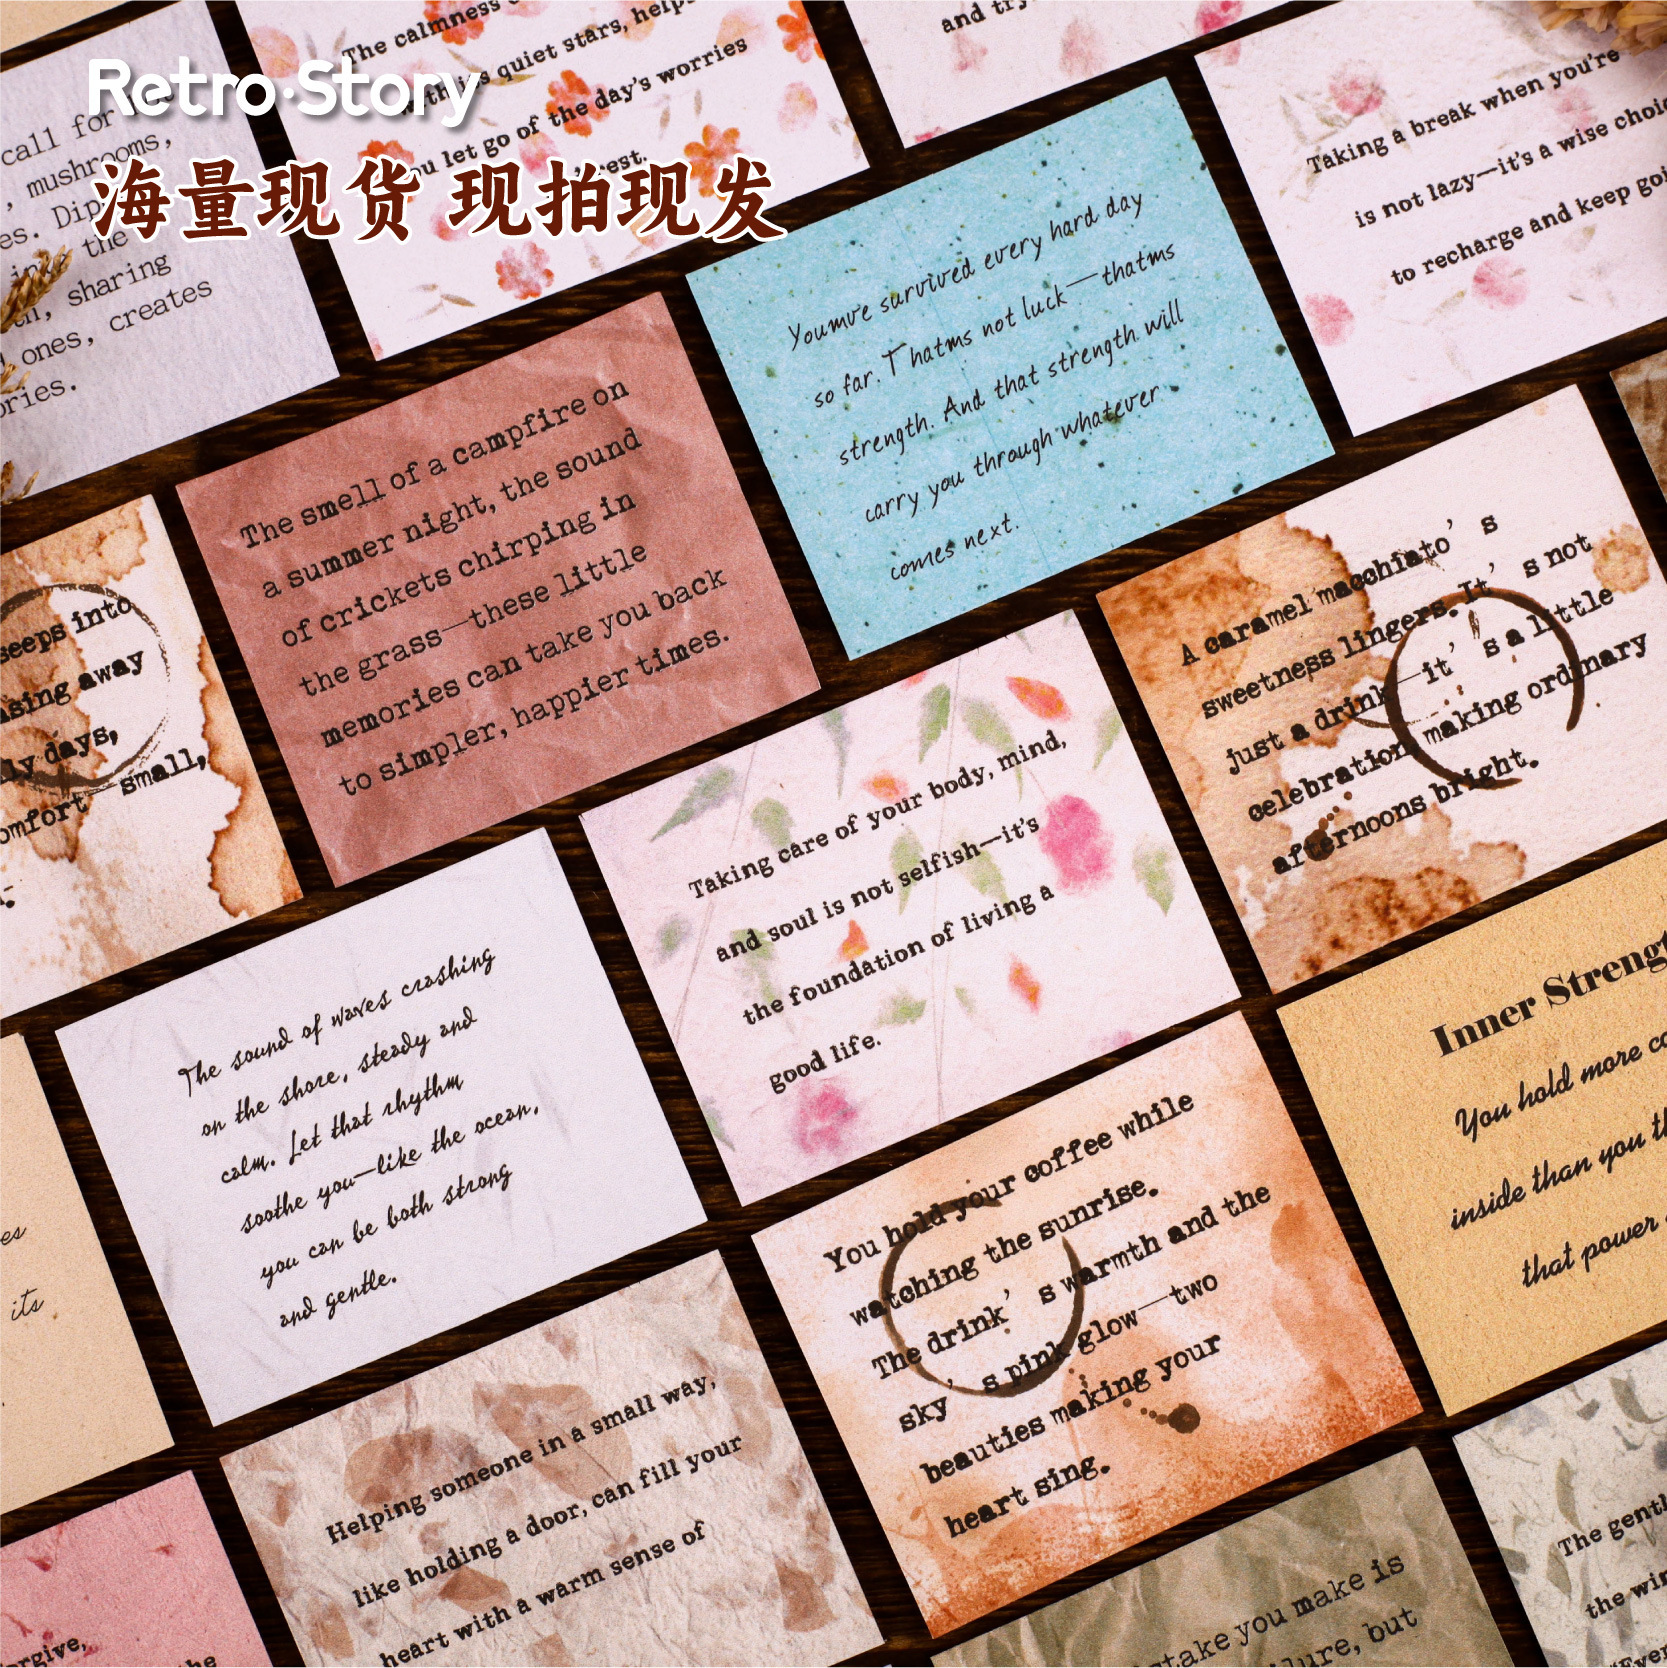 Retro·Story
海量现货 现拍现发
call for
mushrooms,
es. Dip
the
sharing
ones, creates
ories.
The calmness
quiet stars, helps
ou let go of the day's worries
rest.
and try
Taking a break when you're
is not lazy—it's a wise choic
to recharge and keep goi
Youmve survived every hard day
so far. Thatms not luck—thatms
strength. And that strength will
carry you through whatever
comes next.
The smell of a campfire on
a summer night, the sound
of crickets chirping in
the grass—these little
memories can take you back
to simpler, happier times.
seeps into
sing away
ly days,
omfort small,
A caramel macchiato's
sweetness lingers. It's not
just a drink—it's a little
celebration, making ordinary
afternoons bright.
Taking care of your body, mind,
and soul is not selfish—it's
the foundation of living a
good life.
The sound of waves crashing
on the shore, steady and
calm. Let that rhythm
soothe you—like the ocean,
you can be both strong
and gentle.
Inner Strengt
You hold more co
inside than you th
that power
You hold your coffee while
watching the sunrise.
The drink's warmth and the
sky's pink glow—two
beauties making your
heart sing.
es
its
Helping someone in a small way,
like holding a door, can fill your
heart with a warm sense of
orgive,
the
stake you make is
ilure, but
The gentl
the win
"Ever